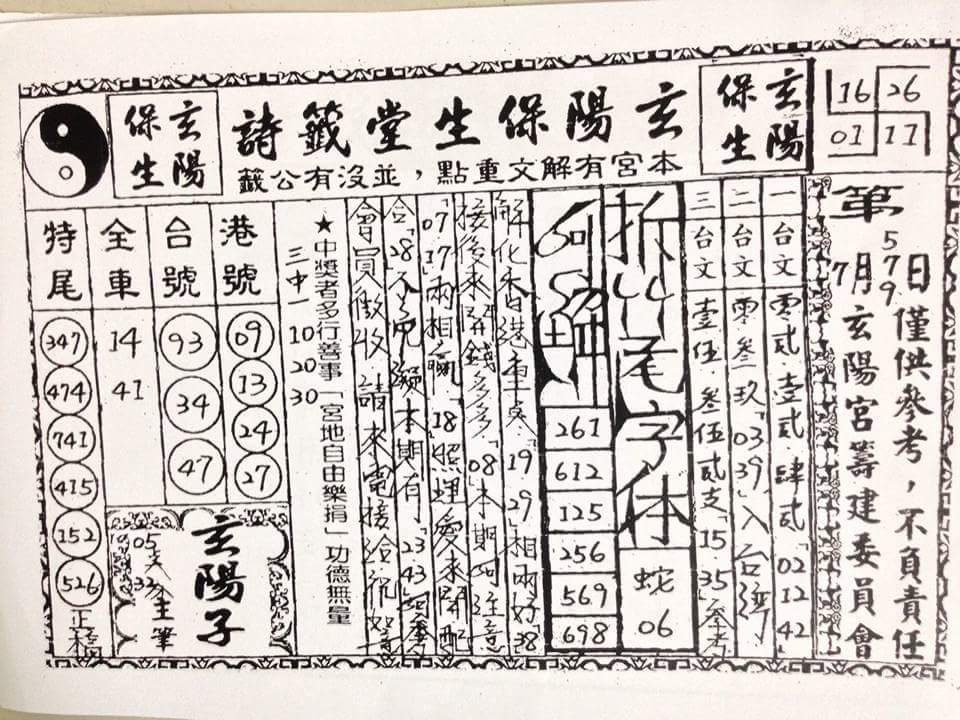 16 26
01 11
玄陽保生
玄陽保生堂籤詩
本宮有解文重點，並沒有公籤
玄陽保生
第579日僅供參考，不負責任
7月玄陽宮籌建委員會
一台文 零貳 壹貳 肆貳「02 12 42
二台文 零叁玖「03 39」入台
三台文 壹伍 叁伍貳支「15 35」參考
字体
蛇
06
261
612
125
256
569
698
解化香港車「19 29」相兩好「38
接後來 錢多多「08」本期 注意
「07 17」兩相贏「18」照理愛來開
合「28」本期有「23 43」
會員做收 請來電接洽
★中獎者多行善事「宮地自由樂捐」功德無量
三中一 10 20 30
港號
09
13
24
27
台號
93
34
47
全車
14
41
特尾
347
474
741
415
152
526
玄陽子
主筆